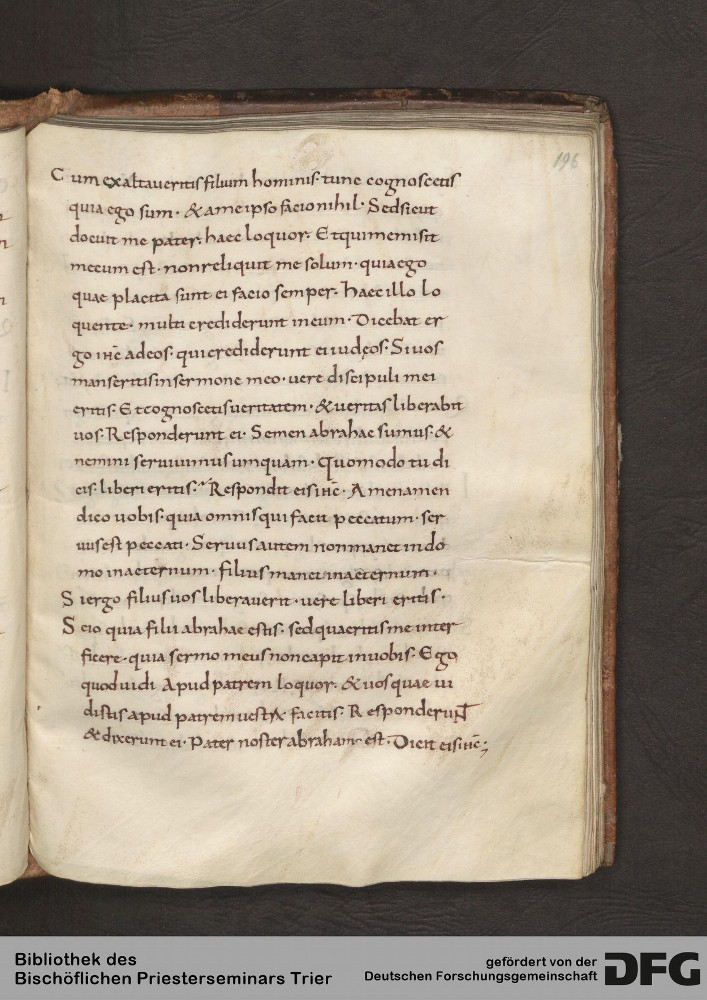 196
Cum exaltaueritis filium hominis· tunc cognoscetis
quia ego sum· & a me ipso facio nihil· Sed sicut
docuit me pater· haec loquor· Et qui me misit
mecum est· non reliquit me solum· quia ego
quae placita sunt ei facio semper· haec illo lo
quente· multi crediderunt in eum· Dicebat er
go ihc ad eos· qui crediderunt ei iudeos· Si uos
manseritis in sermone meo· uere discipuli mei
eritis· Et cognoscetis ueritatem· & ueritas liberabit
uos· Responderunt ei· Semen abrahae sumus· &
nemini seruiuimus umquam· Quomodo tu di
cis· liberi eritis· Respondit eis ihc· Amen amen
dico uobis· quia omnis qui facit peccatum· ser
uus est peccati· Seruus autem non manet in do
mo in aeternum· filius manet in aeternum·
Si ergo filius uos liberauerit· uere liberi eritis·
Scio quia filii abrahae estis· sed quaeritis me inter
ficere· quia sermo meus non capit in uobis· Ego
quod uidi apud patrem loquor· & uos quae ui
distis apud patrem uestrum facitis· Responderunt
& dixerunt ei· Pater noster abraham est· Dicit eis ihc;
Bibliothek des
Bischöflichen Priesterseminars Trier
gefördert von der
Deutschen Forschungsgemeinschaft
DFG